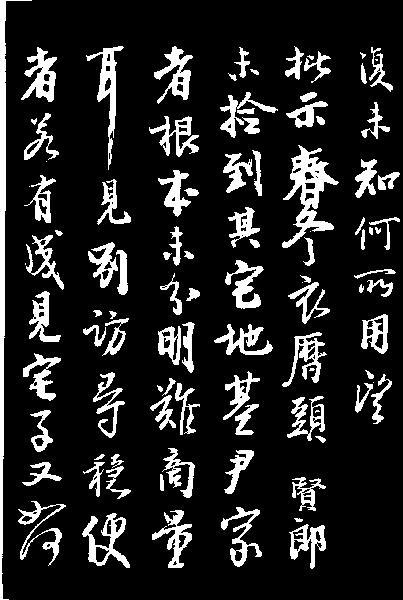 復未知何所用望
批示春冬衣曆頭賢郎
未拾到其宅地基尹家
者根本未分明難商量
耳見別訪尋穩便
者若有成見宅子又如何